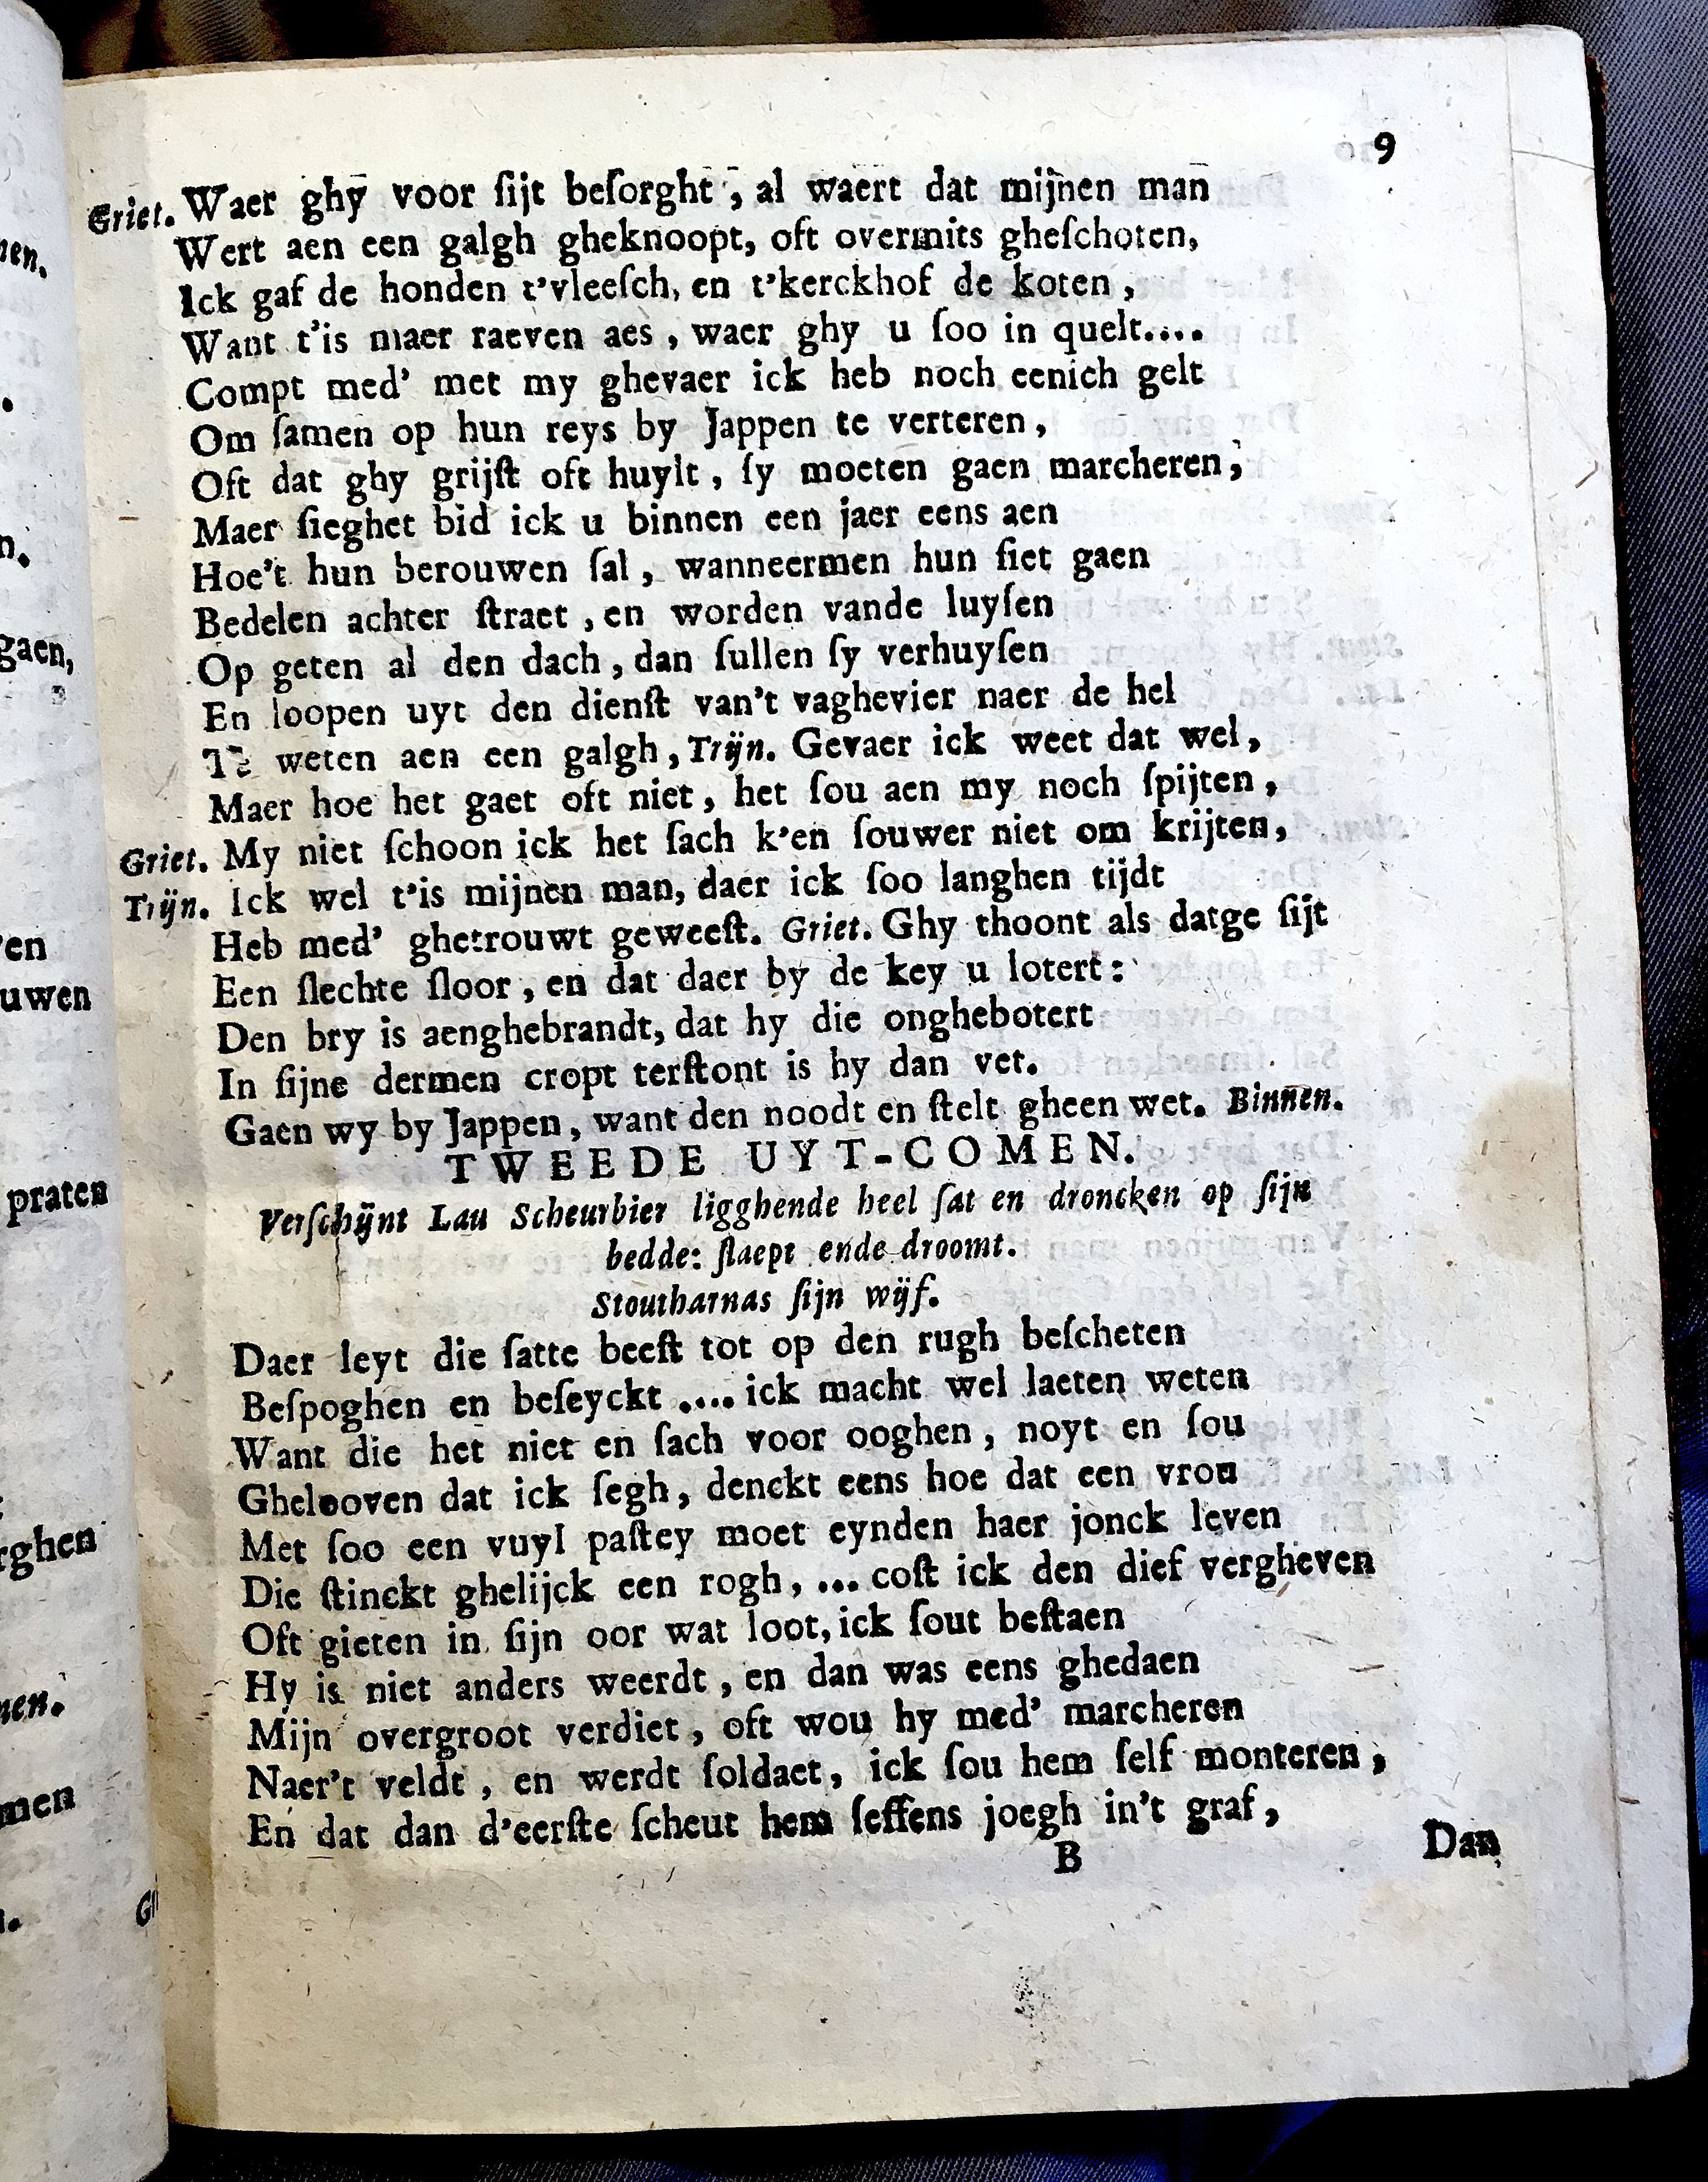 9
Griet. Waer ghy voor ſijt beſorght, al waert dat mijnen man
Wert aen een galgh gheknoopt, oft overmits gheſchoten,
Ick gaf de honden t'vleeſch, en t'kerckhof de koten,
Want t'is maer raeven aes, waer ghy u ſoo in quelt....
Compt med' met my ghevaer ick heb noch eenich gelt
Om ſamen op hun reys by Jappen te verteren,
Oft dat ghy grijſt oft huylt, ſy moeten gaen marcheren,
Maer ſieghet bid ick u binnen een jaer eens aen
Hoe't hun berouwen ſal, wanneermen hun ſiet gaen
Bedelen achter ſtraet, en worden vande luyſen
Op geten al den dach, dan ſullen ſy verhuyſen
En loopen uyt den dienſt van't vaghevier naer de hel
Te weten aen een galgh, Trijn. Gevaer ick weet dat wel,
Maer hoe het gaet oft niet, het ſou aen my noch ſpijten,
Griet. My niet ſchoon ick het ſach k'en ſouwer niet om krijten,
Trijn. Ick wel t'is mijnen man, daer ick ſoo langhen tijdt
Heb med' ghetrouwt geweeſt. Griet. Ghy thoont als datge ſijt
Een ſlechte ſloor, en dat daer by de key u lotert:
Den bry is aenghebrandt, dat hy die onghebotert
In ſijne dermen cropt terſtont is hy dan vet.
Gaen wy by Jappen, want den noodt en ſtelt gheen wet. Binnen.
TWEEDE UYT-COMEN.
Verſchijnt Lau Scheurbier ligghende heel ſat en droncken op ſijn
bedde: ſlaept ende droomt.
Stoutharnas ſijn wijf.
Daer leyt die ſatte beeſt tot op den rugh beſcheten
Beſpoghen en beſeyckt .... ick macht wel laeten weten
Want die het niet en ſach voor ooghen, noyt en ſou
Ghelooven dat ick ſegh, denckt eens hoe dat een vrou
Met ſoo een vuyl paſtey moet eynden haer jonck leven
Die ſtinckt ghelijck een rogh, ... coſt ick den dief vergheven
Oft gieten in ſijn oor wat loot, ick ſout beſtaen
Hy is niet anders weerdt, en dan was eens ghedaen
Mijn overgroot verdiet, oft wou hy med' marcheren
Naer't veldt, en werdt ſoldaet, ick ſou hem ſelf monteren,
En dat dan d'eerſte ſcheut hem ſeffens joegh in't graf,
B
Dan